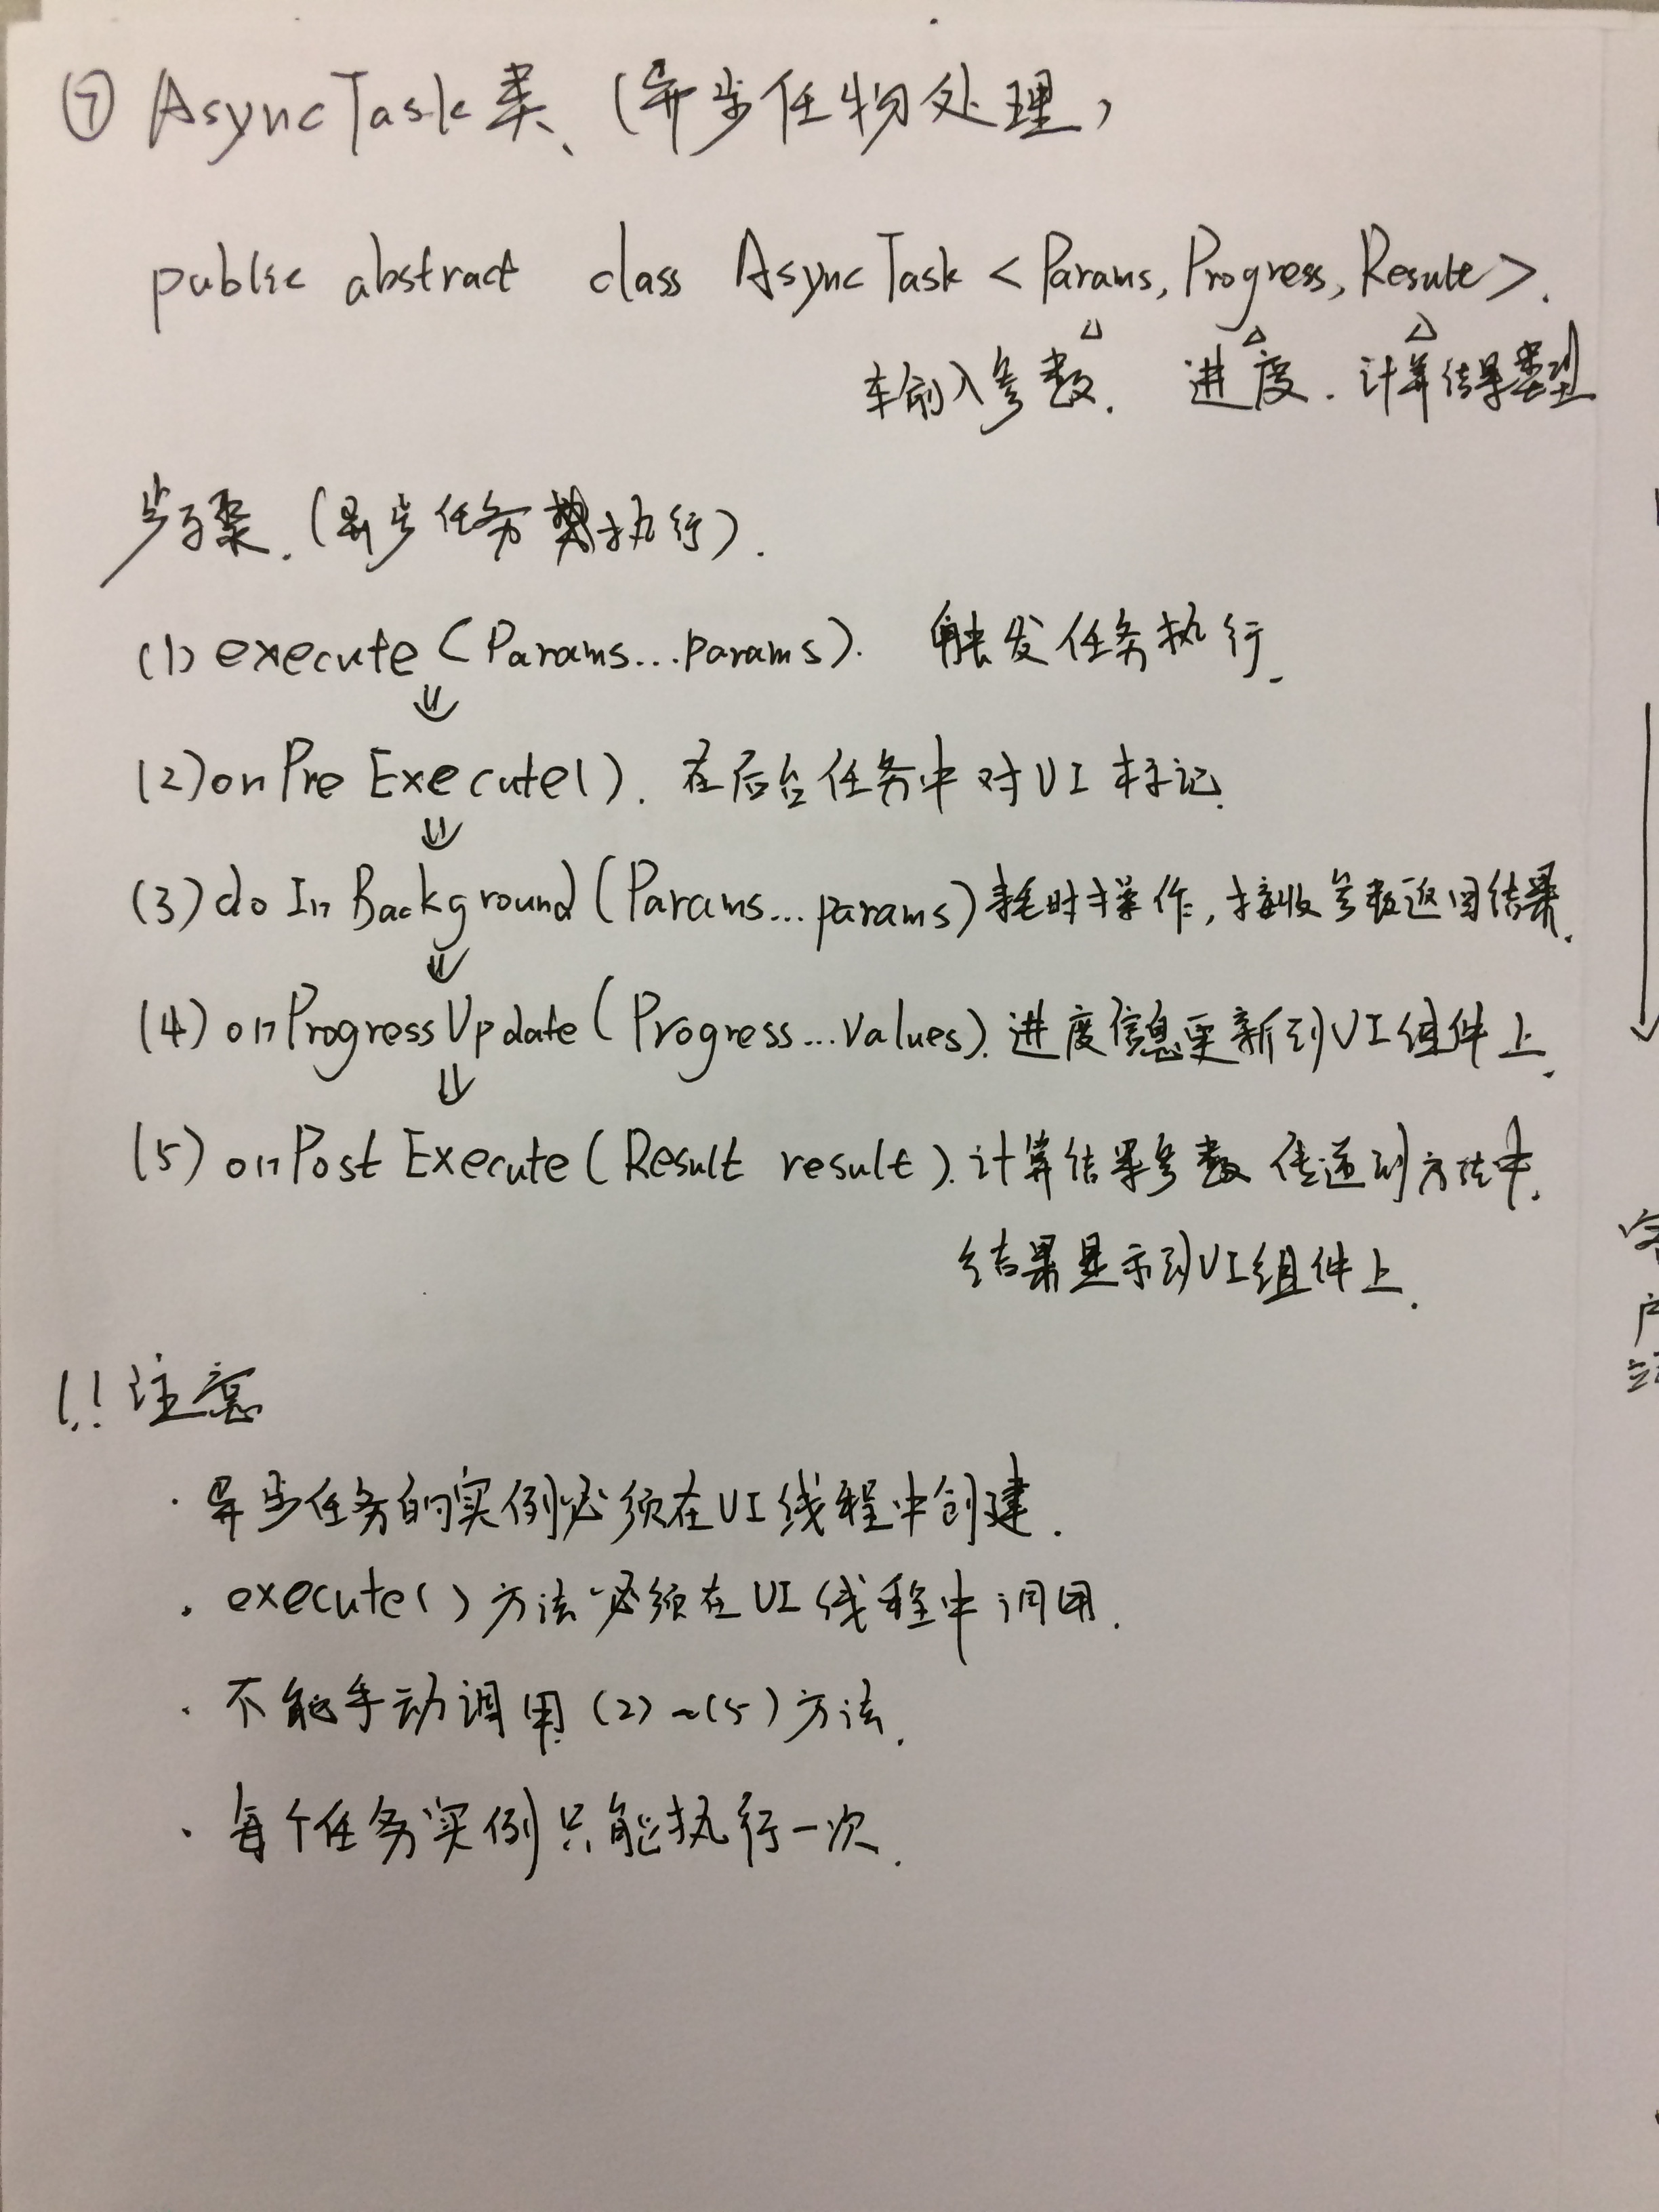 ⑦ AsyncTask类、(异步任物处理,
public abstract class AsyncTask <Params, Progress, Resulte>.
△ △ △
输入参数. 进度. 计算结果类型
步骤.(异步任务执行).
(1) execute (Params...params). 触发任务执行.
⇓
(2) onPreExecute(). 在后台任务中对UI标记.
⇓
(3) doInBackground(Params...params)耗时操作,接收参数返回结果.
⇓
(4) onProgressUpdate(Progress...values).进度信息更新到UI组件上.
⇓
(5) onPostExecute(Result result).计算结果参数传递到方法中.
结果显示到UI组件上.
!! 注意
· 异步任务的实例必须在UI线程中创建.
· execute()方法必须在UI线程中调用.
· 不能手动调用(2)~(5)方法.
· 每个任务实例只能执行一次.
客
户